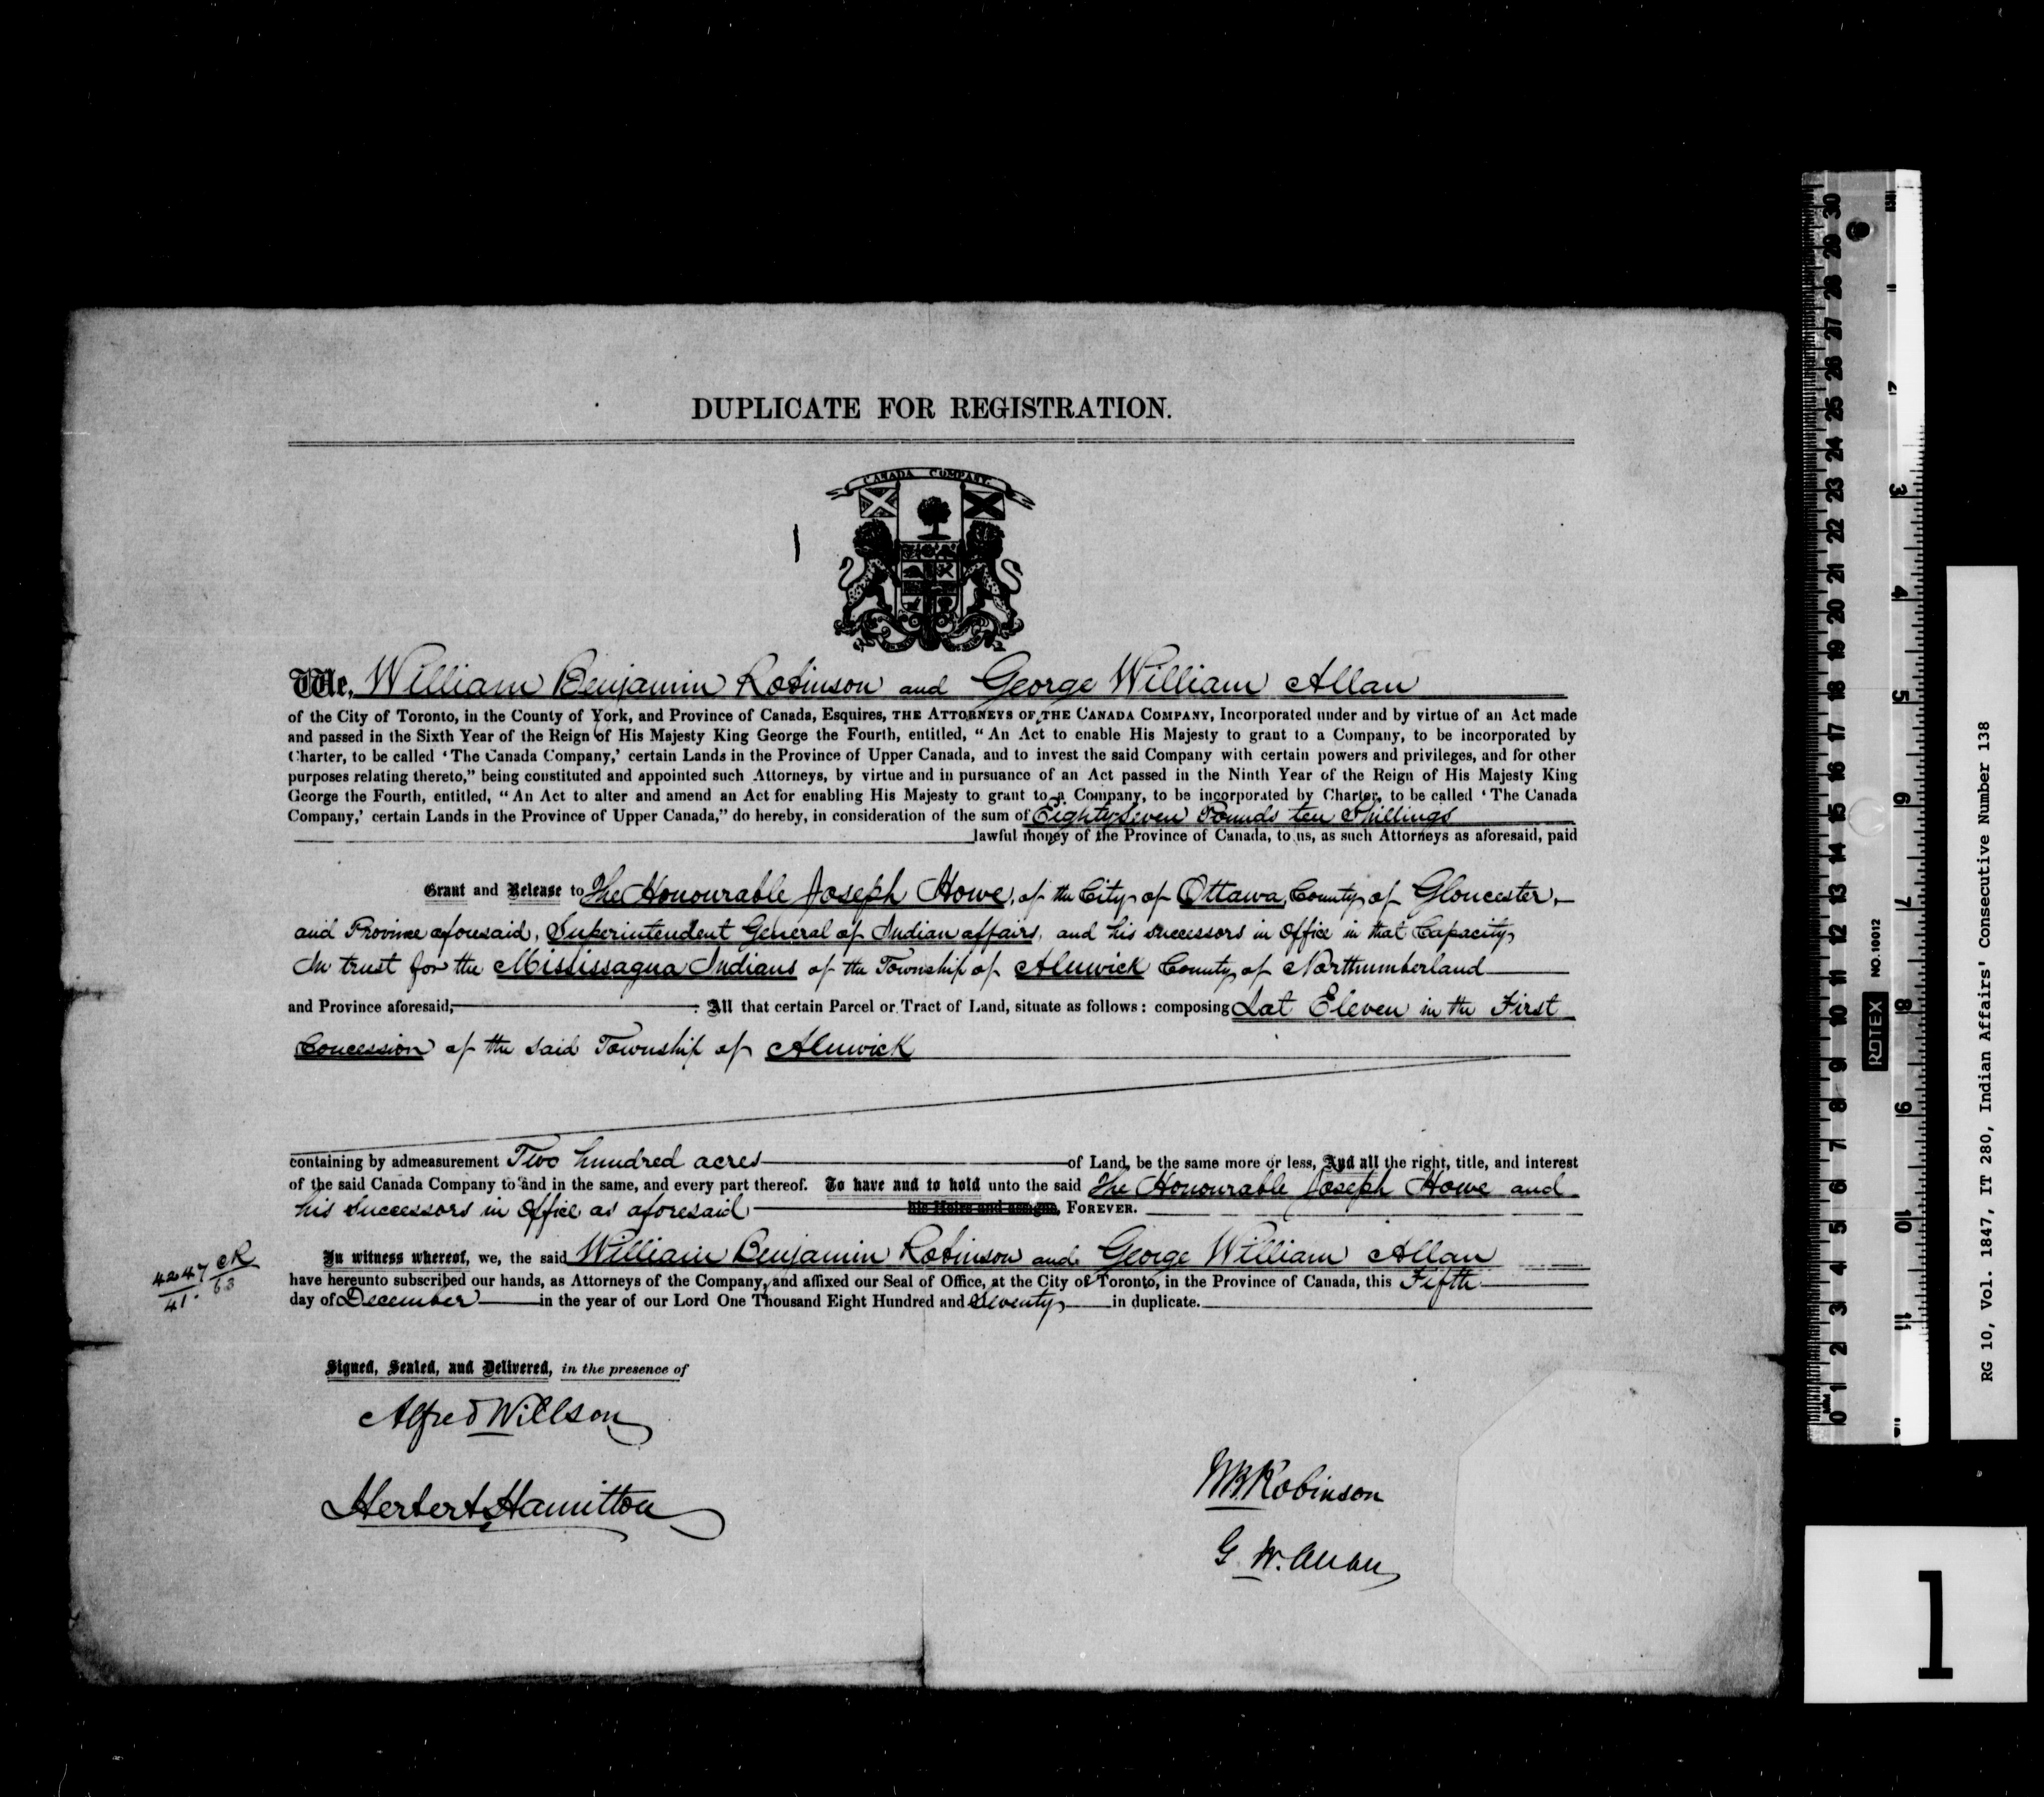 DUPLICATE FOR REGISTRATION.
CANADA COMPANY.
We, William Benjamin Robinson and George William Allan
of the City of Toronto, in the County of York, and Province of Canada, Esquires, THE ATTORNEYS OF THE CANADA COMPANY, Incorporated under and by virtue of an Act made
and passed in the Sixth Year of the Reign of His Majesty King George the Fourth, entitled, “An Act to enable His Majesty to grant to a Company, to be incorporated by
Charter, to be called ‘The Canada Company,’ certain Lands in the Province of Upper Canada, and to invest the said Company with certain powers and privileges, and for other
purposes relating thereto,” being constituted and appointed such Attorneys, by virtue and in pursuance of an Act passed in the Ninth Year of the Reign of His Majesty King
George the Fourth, entitled, “An Act to alter and amend an Act for enabling His Majesty to grant to a Company, to be incorporated by Charter, to be called ‘The Canada
Company,’ certain Lands in the Province of Upper Canada,” do hereby, in consideration of the sum of Eighty Seven Pounds ten Shillings
lawful money of the Province of Canada, to us, as such Attorneys as aforesaid, paid
Grant and Release to The Honourable Joseph Howe, of the City of Ottawa, County of Gloucester,
and Province aforesaid, Superintendent General of Indian affairs, and his Successors in Office in that Capacity
In trust for the Mississagua Indians of the Township of Alnwick County of Northumberland
and Province aforesaid, All that certain Parcel or Tract of Land, situate as follows: composing Lot Eleven in the First
Concession of the said Township of Alnwick
containing by admeasurement Two hundred acres of Land, be the same more or less, And all the right, title, and interest
of the said Canada Company to and in the same, and every part thereof. To have and to hold unto the said The Honourable Joseph Howe and
his Successors in Office as aforesaid his Heirs and assigns, FOREVER.
In witness whereof, we, the said William Benjamin Robinson and George William Allan
have hereunto subscribed our hands, as Attorneys of the Company, and affixed our Seal of Office, at the City of Toronto, in the Province of Canada, this Fifth
day of December in the year of our Lord One Thousand Eight Hundred and Seventy in duplicate.
4247 CR
41. 63
Signed, Sealed, and Delivered, in the presence of
Alfred Willson
Herbert Hamilton
W B Robinson
G. W. Allan
ROTEX NO. 10012
RG 10, Vol. 1847, IT 280, Indian Affairs' Consecutive Number 138
1